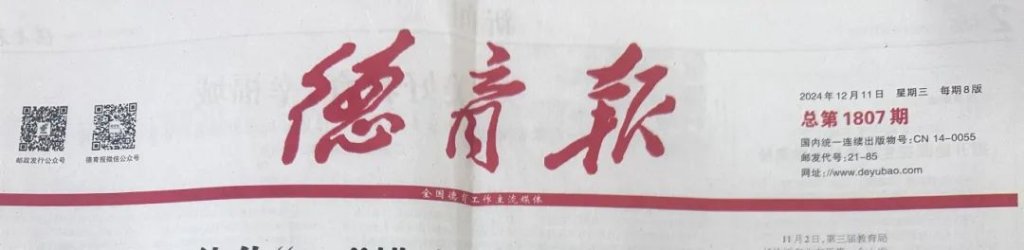 德育报
邮政发行公众号
德育报微信公众号
2024年12月11日 星期三 每期8版
总第1807期
国内统一连续出版物号:CN 14-0055
邮发代号:21-85
网址://www.deyubao.com
全国德育工作主流媒体
11月2日,第三届教育局